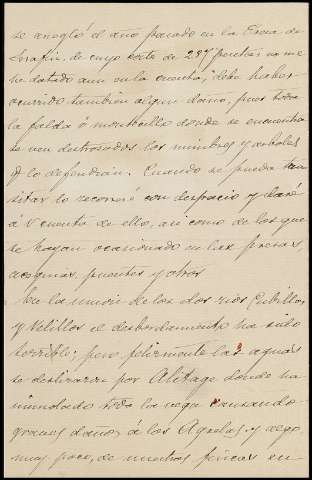 se arregló el año pasado en la Presa de
Serafín, de cuyo corte de 287 pesetas no me
he datado aun en la cuenta; debe haber
ocurrido tambien algun daño, pues toda
la falda ó montecillo donde se encuentra
se ven destrozados los mimbres y arboles
q lo defendian. Cuando se pueda tran
sitar lo recorreré con despacio y daré
á V cuenta de ello, asi como de los que
se hayan ocasionado en las presas,
acequias, puentes y otros
En la union de los dos rios Cubillas
y Velillos el desbordamiento ha sido
terrible; pero felizmente las aguas
se deslizaron por Alitaje donde ha
inundado toda la vega causando
graves daños, á los Agrelas, y algo,
muy poco, de nuestras fincas en-